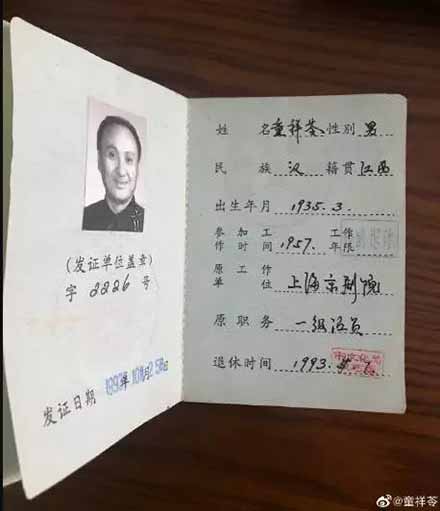 (发证单位盖章)
字 2226 号
发证日期 1993年10月25日
姓 名 童祥苓 性别 男
民 族 汉 籍贯 江西
出生年月 1935.3.
参加工作时间 1957. 工作年限
原工作单位 上海京剧院
原职务 一级演员
退休时间 1993.
@童祥苓